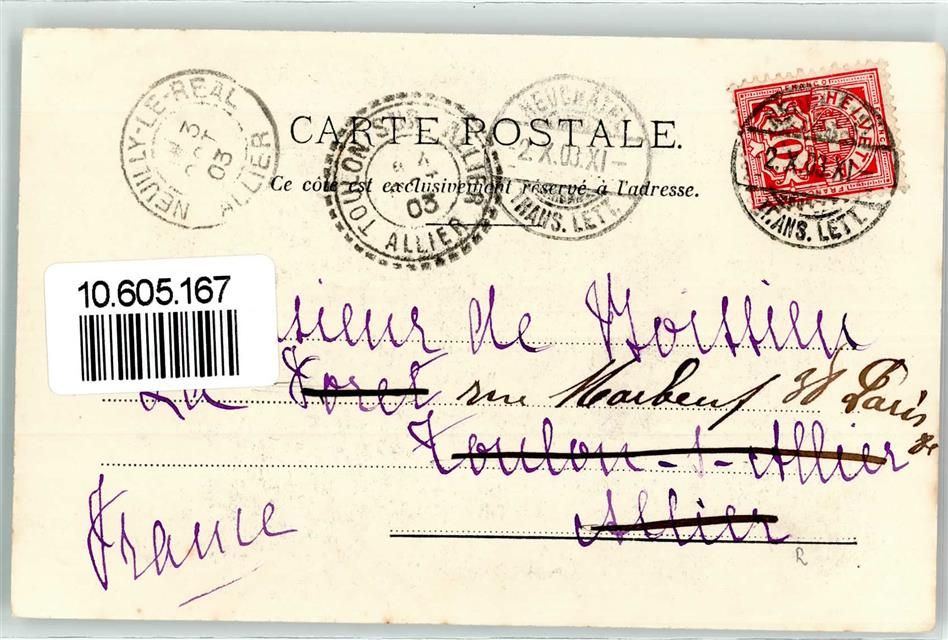 CARTE POSTALE.
Ce côté est exclusivement réservé à l'adresse.
NEUILLY-LE-REAL
3
03
ALLIER
TOULON-SUR-ALLIER
03
ALLIER
NEUCHATEL
2.X.03.XI-
TRANS. LETT.
FRANCO
HELVETIA
10
2.X.03.XI
TRANS. LETT.
10.605.167
sieur de Boissieu
La Foret rue Marbeuf 38 Paris
8e
Toulon-s-Allier
Allier
France
R